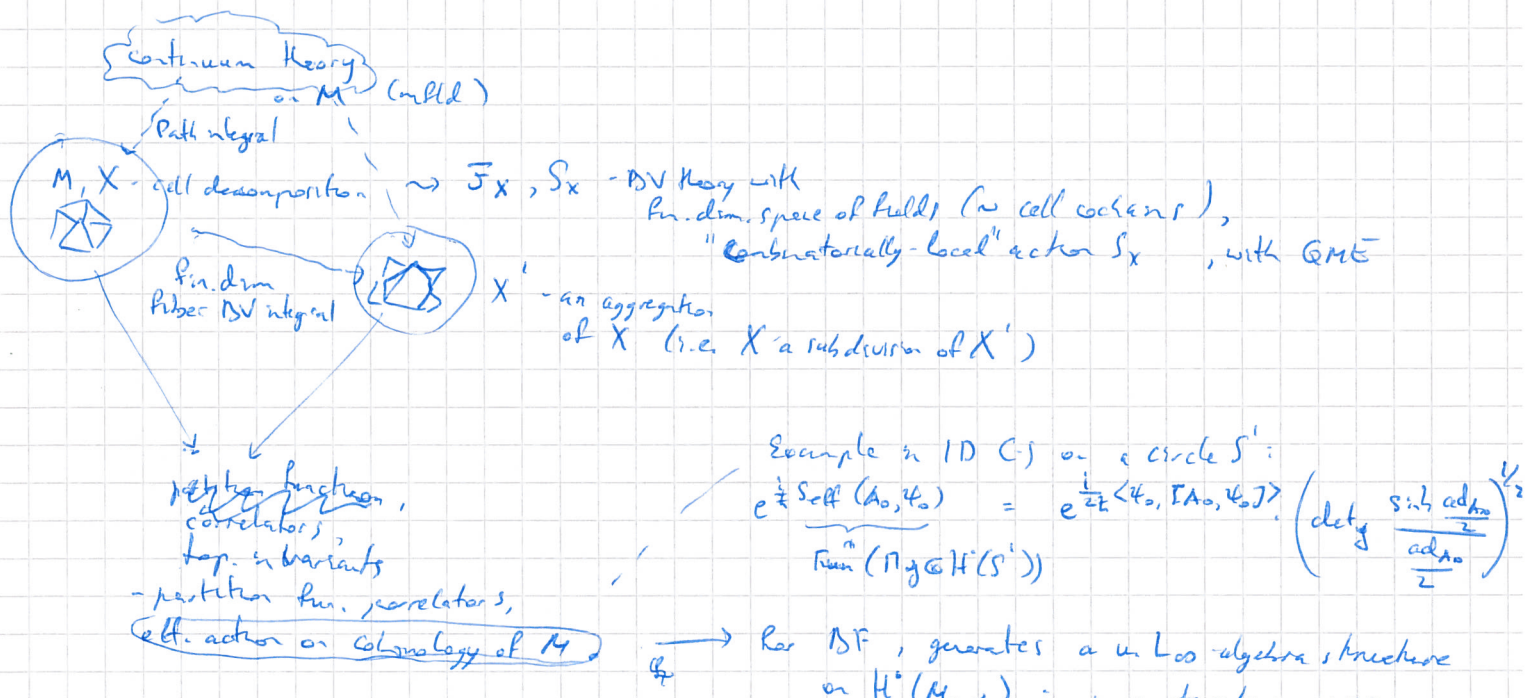 continuum theory
on M (mfld)
Path integral
M, X - cell decomposition ⇝ F_X, S_X - BV theory with
fin. dim. space of fields (~ cell cochains),
"combinatorially-local" action S_X , with QME
fin. dim
fiber BV integral
X' - an aggregation
of X (i.e. X a subdivision of X')
partition function,
correlators,
top. invariants
- partition fun., correlators,
eff. action on cohomology of M
Example in 1D CS on a circle S¹:
e^{i/ħ S_eff (A₀,ψ₀)} = e^{1/2ħ <ψ₀, [A₀,ψ₀]>} · (det_g (sinh ad_{A₀}/2)/(ad_{A₀}/2))^{1/2}
Fun (Πg⊗H^•(S¹))
→ for BF, generates a u L∞ algebra structure
on H^•(M